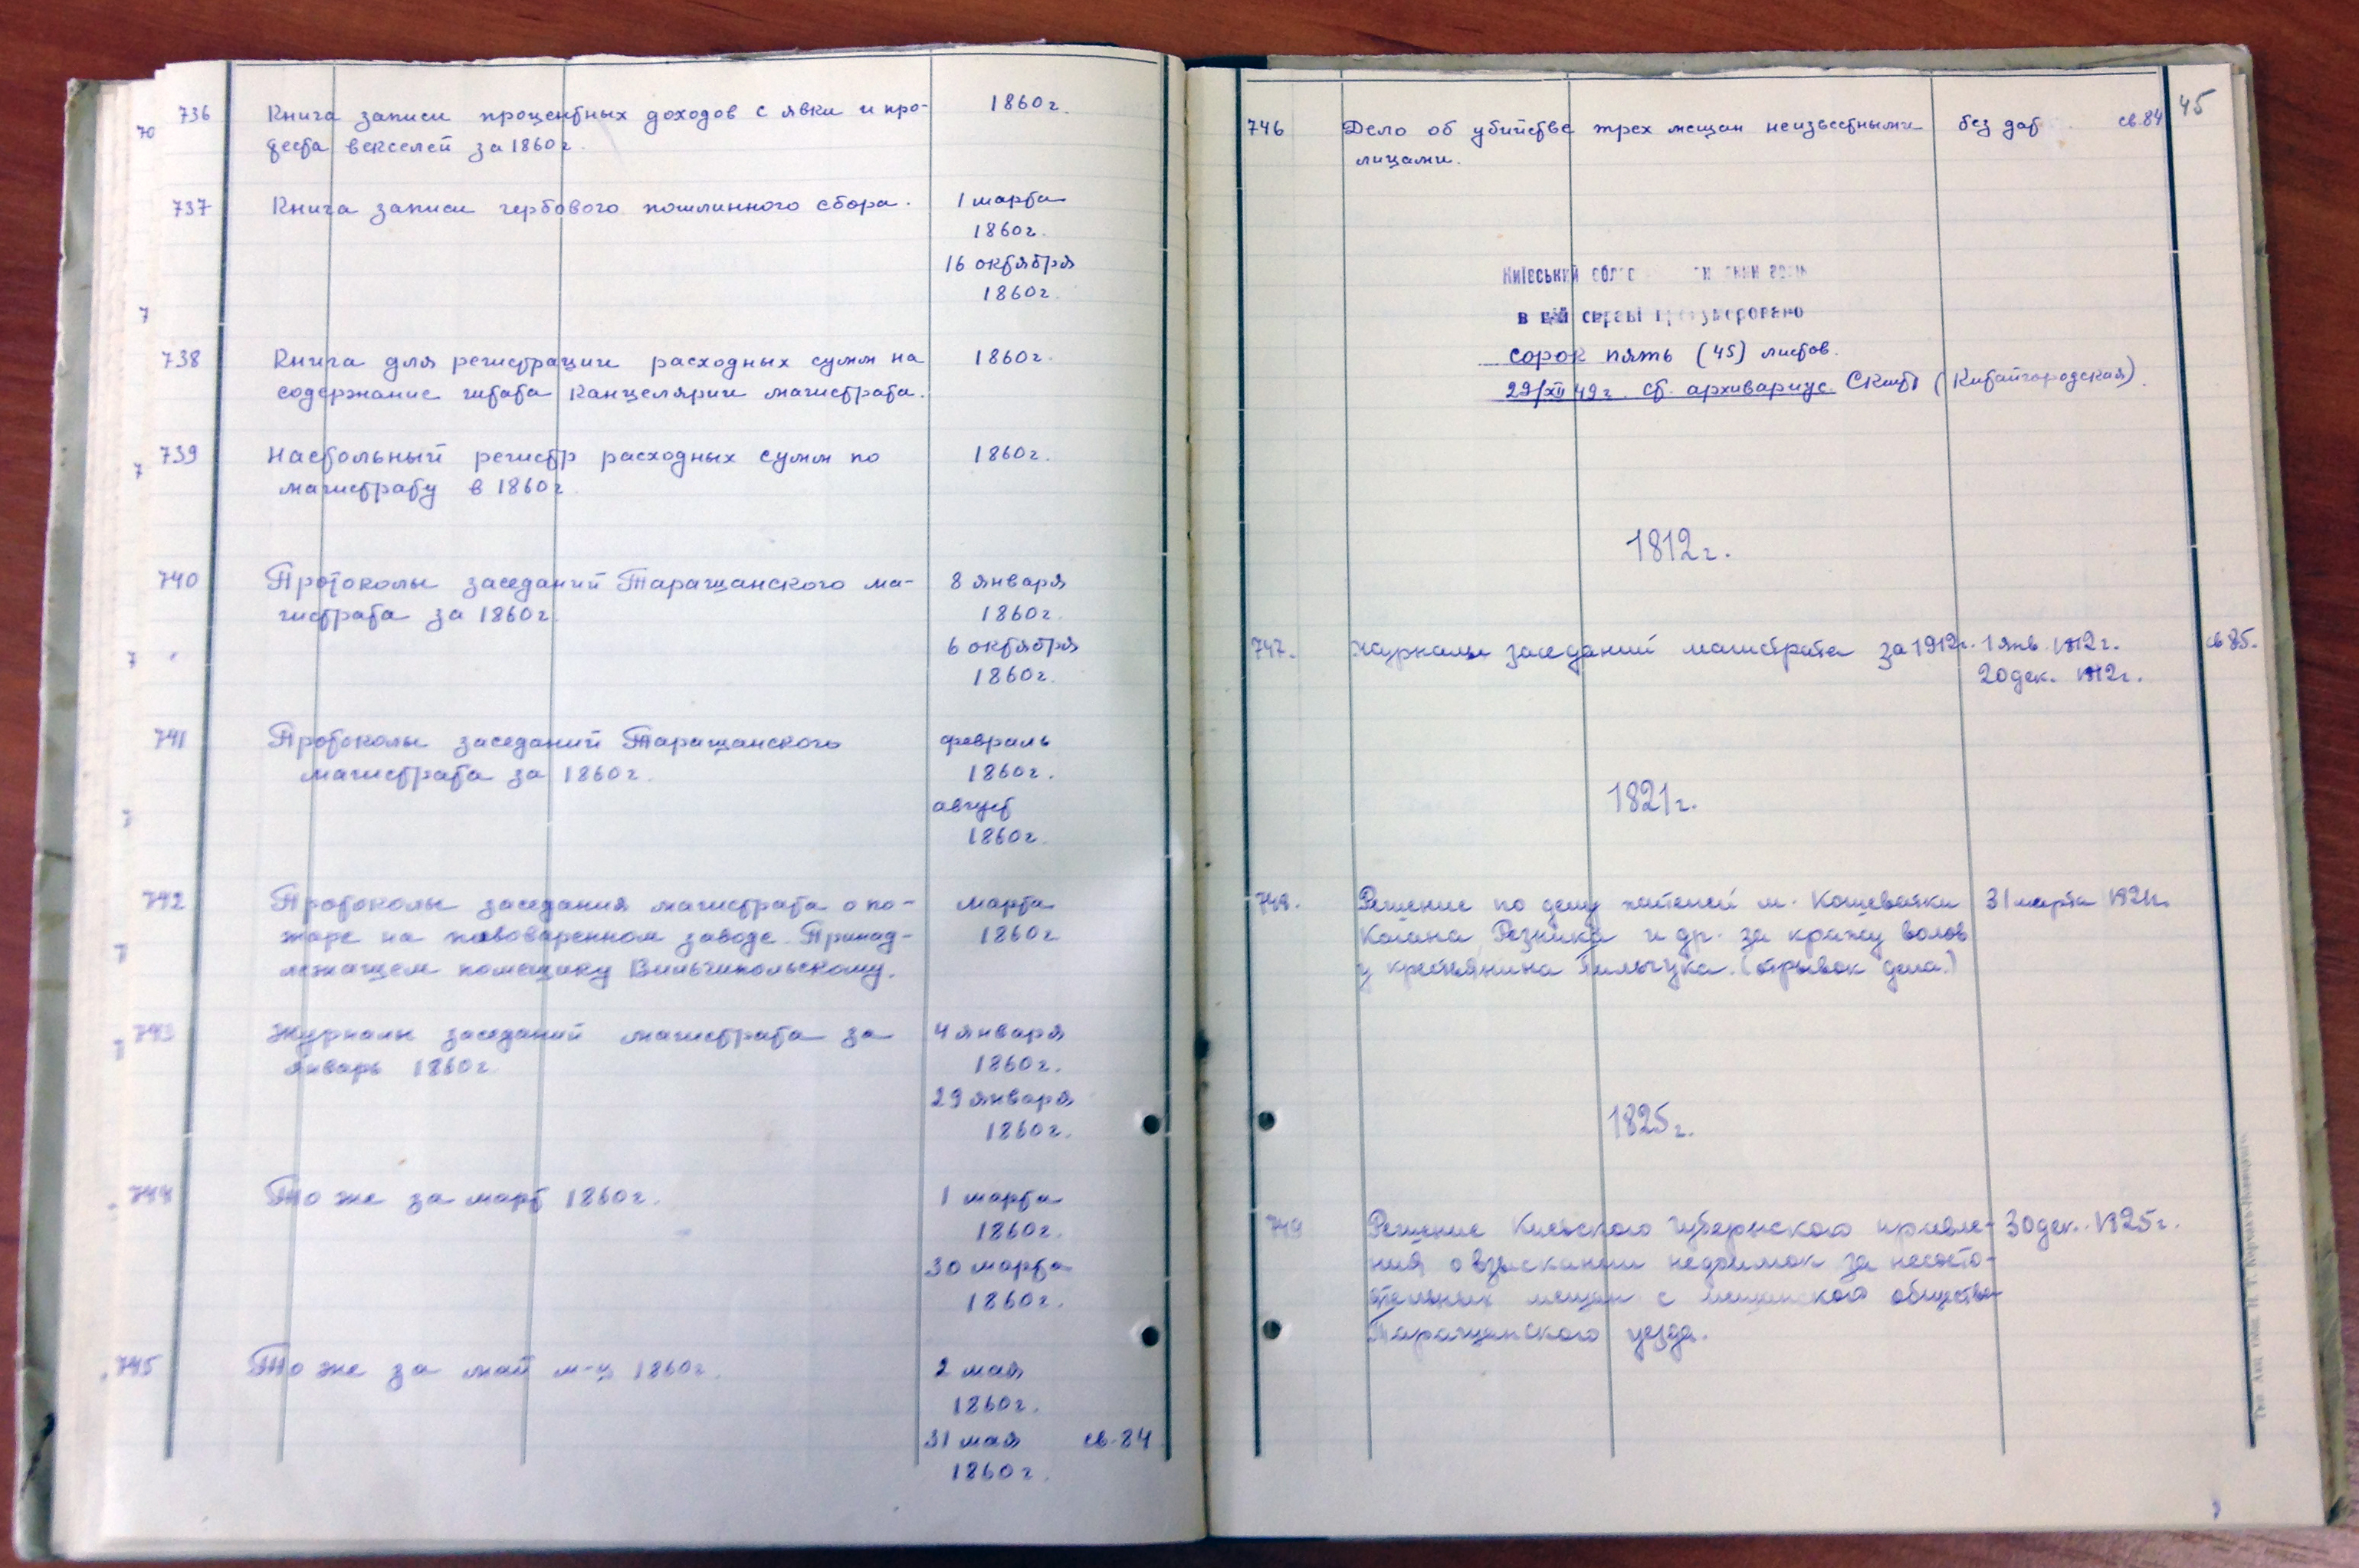 736 Книга записи процентных доходов с явки и про- 1860 г.
70
теста векселей за 1860 г.
737 Книга записи гербового пошлинного сбора. 1 марта
1860 г.
16 октября
1860 г.
7
738 Книга для регистрации расходных сумм на 1860 г.
содержание штата канцелярии магистрата.
739 Настольный регистр расходных сумм по 1860 г.
7
магистрату в 1860 г
740 Протоколы заседаний Таращанского ма- 8 января
гистрата за 1860 г. 1860 г.
6 октября
7
1860 г.
741 Протоколы заседаний Таращанского февраль
магистрата за 1860 г. 1860 г.
август
7
1860 г.
742 Протоколы заседания магистрата о по- марта
жаре на пивоваренном заводе. Принад- 1860 г
7
лежащем помещику
743 Журналы заседаний магистрата за 4 января
январь 1860 г. 1860 г.
29 января
1860 г.
744 То же за март 1860 г. 1 марта
1860 г.
30 марта
1860 г.
745 То же за май м-ц 1860 г. 2 мая
1860 г.
31 мая св. 84
1860 г.
45
746 Дело об убийстве трех мещан неизвестными без дат св. 84
лицами.
Київський
в цій справі пронумеровано
сорок пять (45) листов.
29/XII 49 г. ст. архивариус. (Китайгородская)
1812 г.
747. Журналы заседаний магистрата за 1912 г. 1 янв. 1812 г. св 85.
20 дек. 1812 г.
1821 г.
748. Решение по делу жителей м. Кошеватки 31 марта 1821 г.
Когана, Резника и др. за кражу волов
у крестьянина (отрывок дела.)
1825 г.
749 Решение Киевского Губернского правле- 30 дек. 1825 г.
ния о взыскании недоимок за несосто-
ятельных мещан с мещанского общества
Таращанского уезда.